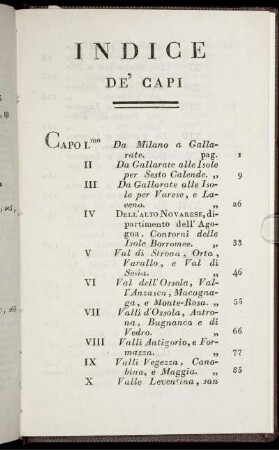 INDICE
DE' CAPI
CAPO I.mo Da Milano a Galla-
rate. pag. 1
II Da Gallarate alle Isole
per Sesto Calende. ,, 9
III Da Gallarate alle Iso-
le per Varese, e La-
veno. ,, 26
IV DELL'ALTO NOVARESE, di-
partimento dell' Ago-
gna. Contorni delle
Isole Borromee. ,, 33
V Val di Strona, Orta,
Varallo, e Val di
Sesia. ,, 46
VI Val dell'Ossola, Val-
l'Anzasca, Macugna-
ga, e Monte-Rosa. ,, 55
VII Valli d'Ossola, Antro-
na, Bugnanca e di
Vedro. ,, 66
VIII Valli Antigorio, e For-
mazza. ,, 77
IX Valli Vegezza, Cano-
bina, e Maggia. ,, 85
X Valle Leventina, san